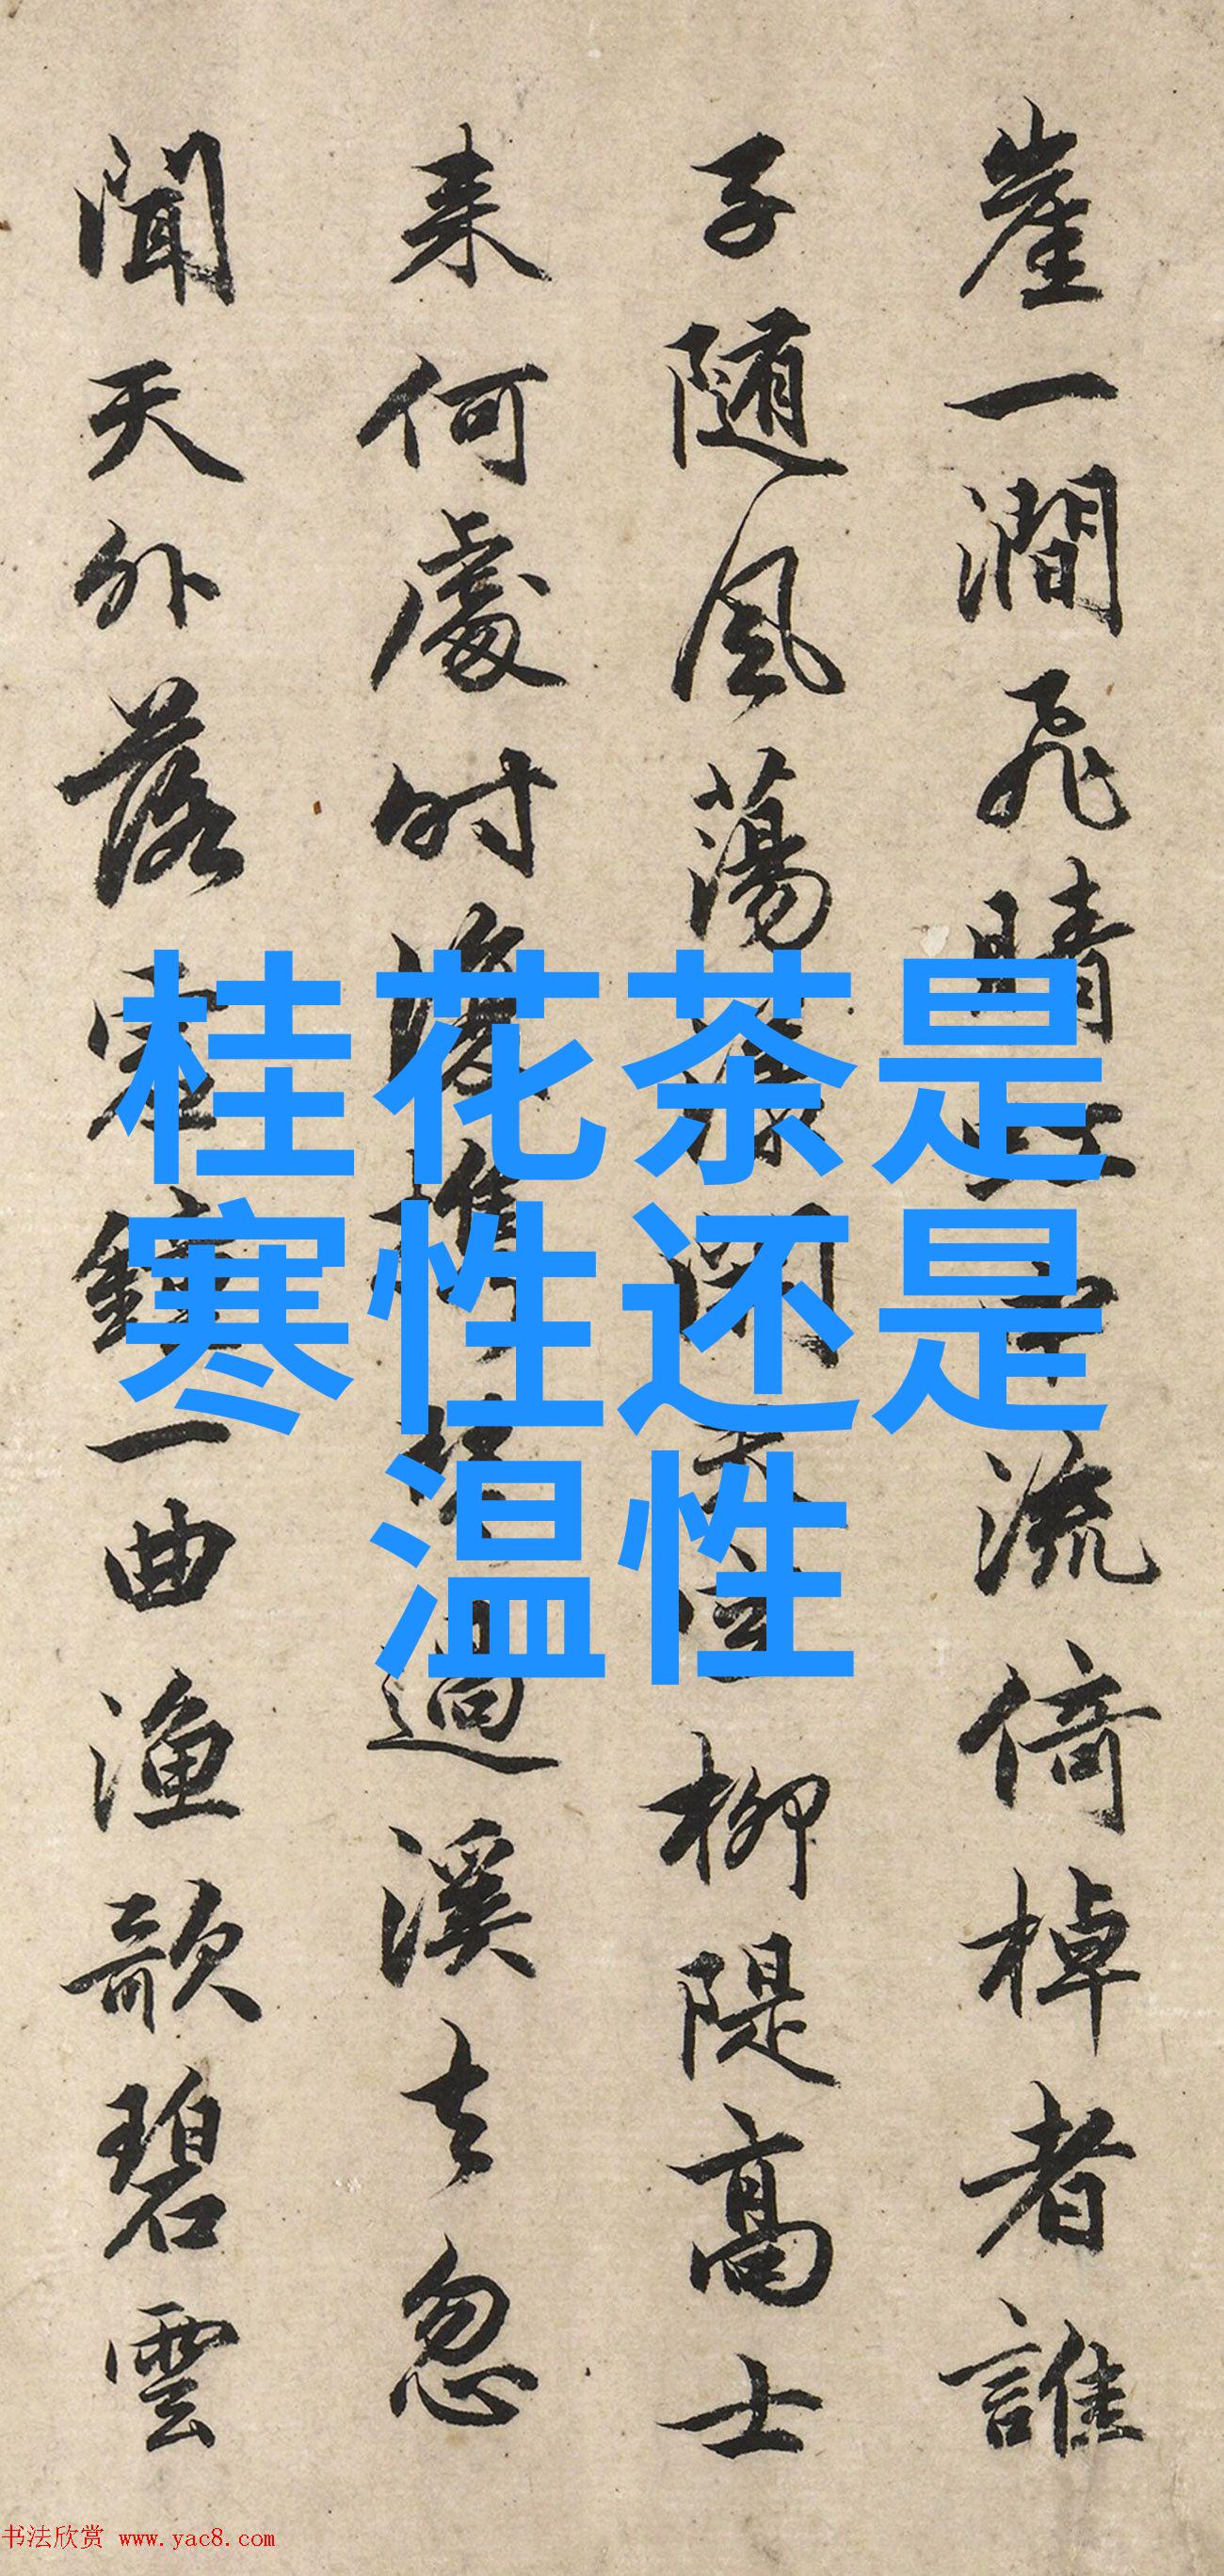 崖一澗飛晴虹中流倚棹者誰
子隨風蕩漾開柳隄高士
来何處時復携琴過溪去忽
聞天外落霜鐘一曲漁歌碧雲
桂花茶是
寒性还是
温性
书法欣赏 www.yac8.com